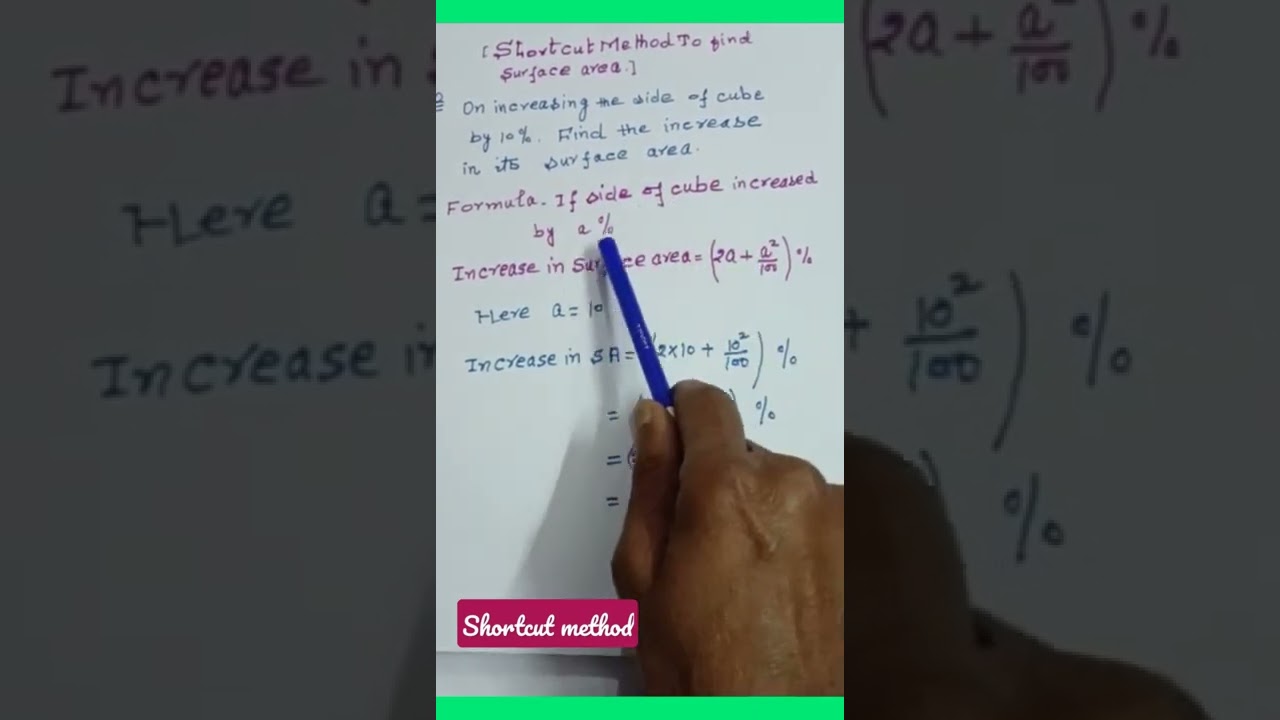 [Shortcut Method To find
surface area.]
On increasing the side of cube
by 10%. Find the increase
in its surface area.
Formula. If side of cube increased
by a %
Increase in Surface area = (2a + a²/100) %
Here a = 10
Increase in SA = (2×10 + 10²/100) %
= %
=
=
Shortcut method
Increase in
(2a + a²/100) %
Here a =
Increase in
+ 10²/100) %
) %